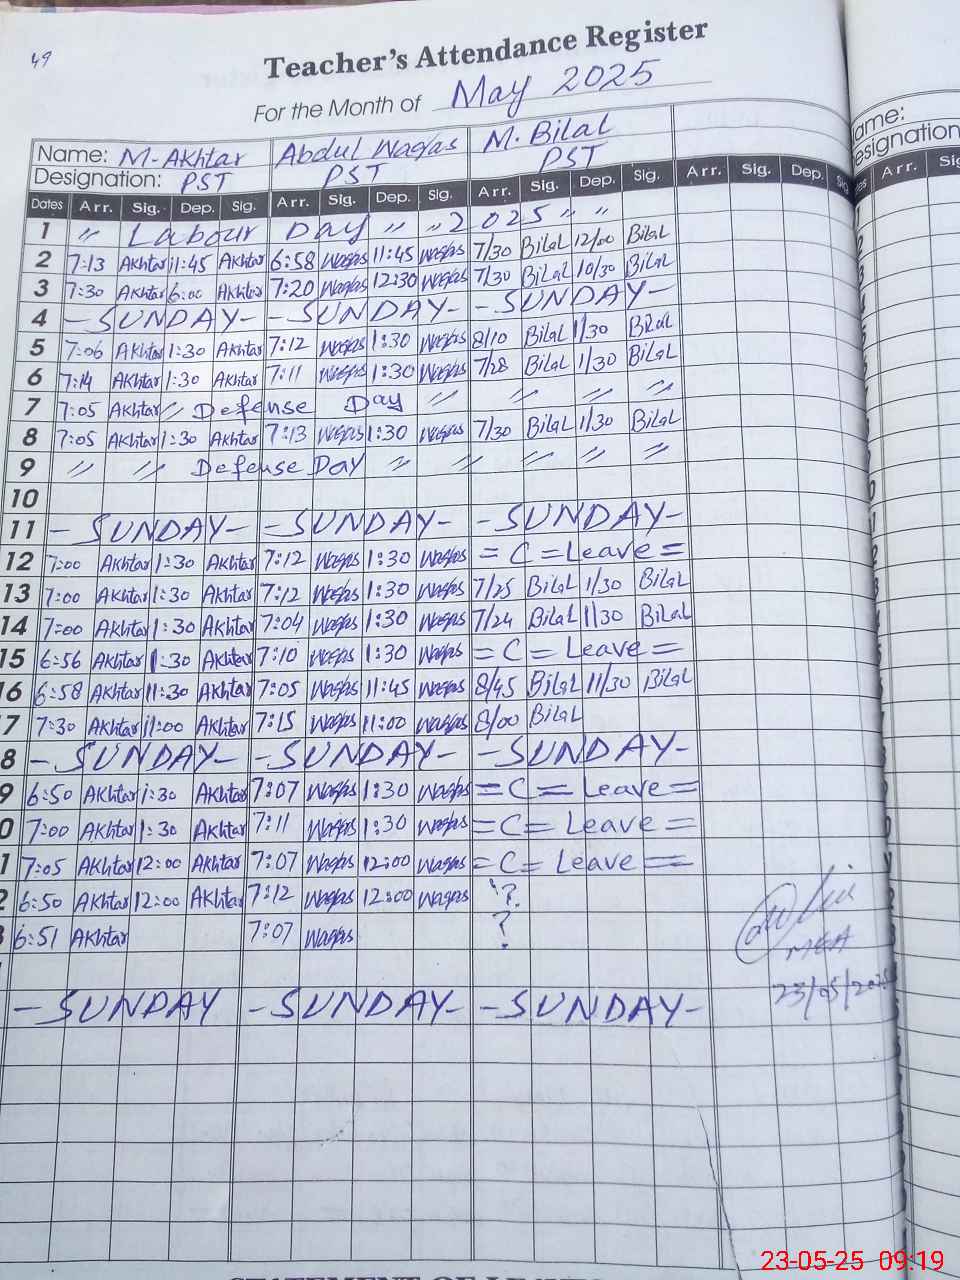 49
Teacher's Attendance Register
For the Month of May 2025
Name: M-Akhtar Abdul Waqas M. Bilal
Designation: PST PST PST
Dates Arr. Sig. Dep. Sig. Arr. Sig. Dep. Sig. Arr. Sig. Dep. Sig. Arr. Sig. Dep. Sig
1 " Labour Day " " 2025 " "
2 7:13 Akhtar 11:45 Akhtar 6:58 Waqas 11:45 Waqas 7/30 Bilal 12/00 Bilal
3 7:30 Akhtar 6:00 Akhtar 7:20 Waqas 12:30 Waqas 7/30 Bilal 10/30 Bilal
4 - SUNDAY - - SUNDAY - - SUNDAY -
5 7:06 Akhtar 1:30 Akhtar 7:12 Waqas 1:30 Waqas 8/10 Bilal 1/30 Bilal
6 7:14 Akhtar 1:30 Akhtar 7:11 Waqas 1:30 Waqas 7/28 Bilal 1/30 Bilal
7 7:05 Akhtar " Defense Day " " " " "
8 7:05 Akhtar 1:30 Akhtar 7:13 Waqas 1:30 Waqas 7/30 Bilal 1/30 Bilal
9 " " Defense Day " " " " "
10
11 - SUNDAY - - SUNDAY - - SUNDAY -
12 7:00 Akhtar 1:30 Akhtar 7:12 Waqas 1:30 Waqas = C = Leave =
13 7:00 Akhtar 1:30 Akhtar 7:12 Waqas 1:30 Waqas 7/25 Bilal 1/30 Bilal
14 7:00 Akhtar 1:30 Akhtar 7:04 Waqas 1:30 Waqas 7/24 Bilal 1/30 Bilal
15 6:56 Akhtar 1:30 Akhtar 7:10 Waqas 1:30 Waqas = C = Leave =
16 6:58 Akhtar 11:30 Akhtar 7:05 Waqas 11:45 Waqas 8/45 Bilal 11/30 Bilal
17 7:30 Akhtar 11:00 Akhtar 7:15 Waqas 11:00 Waqas 8/00 Bilal
8 - SUNDAY - - SUNDAY - - SUNDAY -
9 6:50 Akhtar 1:30 Akhtar 7:07 Waqas 1:30 Waqas = C = Leave =
0 7:00 Akhtar 1:30 Akhtar 7:11 Waqas 1:30 Waqas = C = Leave =
1 7:05 Akhtar 12:00 Akhtar 7:07 Waqas 12:00 Waqas = C = Leave =
2 6:50 Akhtar 12:00 Akhtar 7:12 Waqas 12:00 Waqas ?
3 6:51 Akhtar 7:07 Waqas ?
- SUNDAY - SUNDAY - - SUNDAY -
MEA
23/05/2025
ame:
esignation
Arr. Sig
23-05-25 09:19